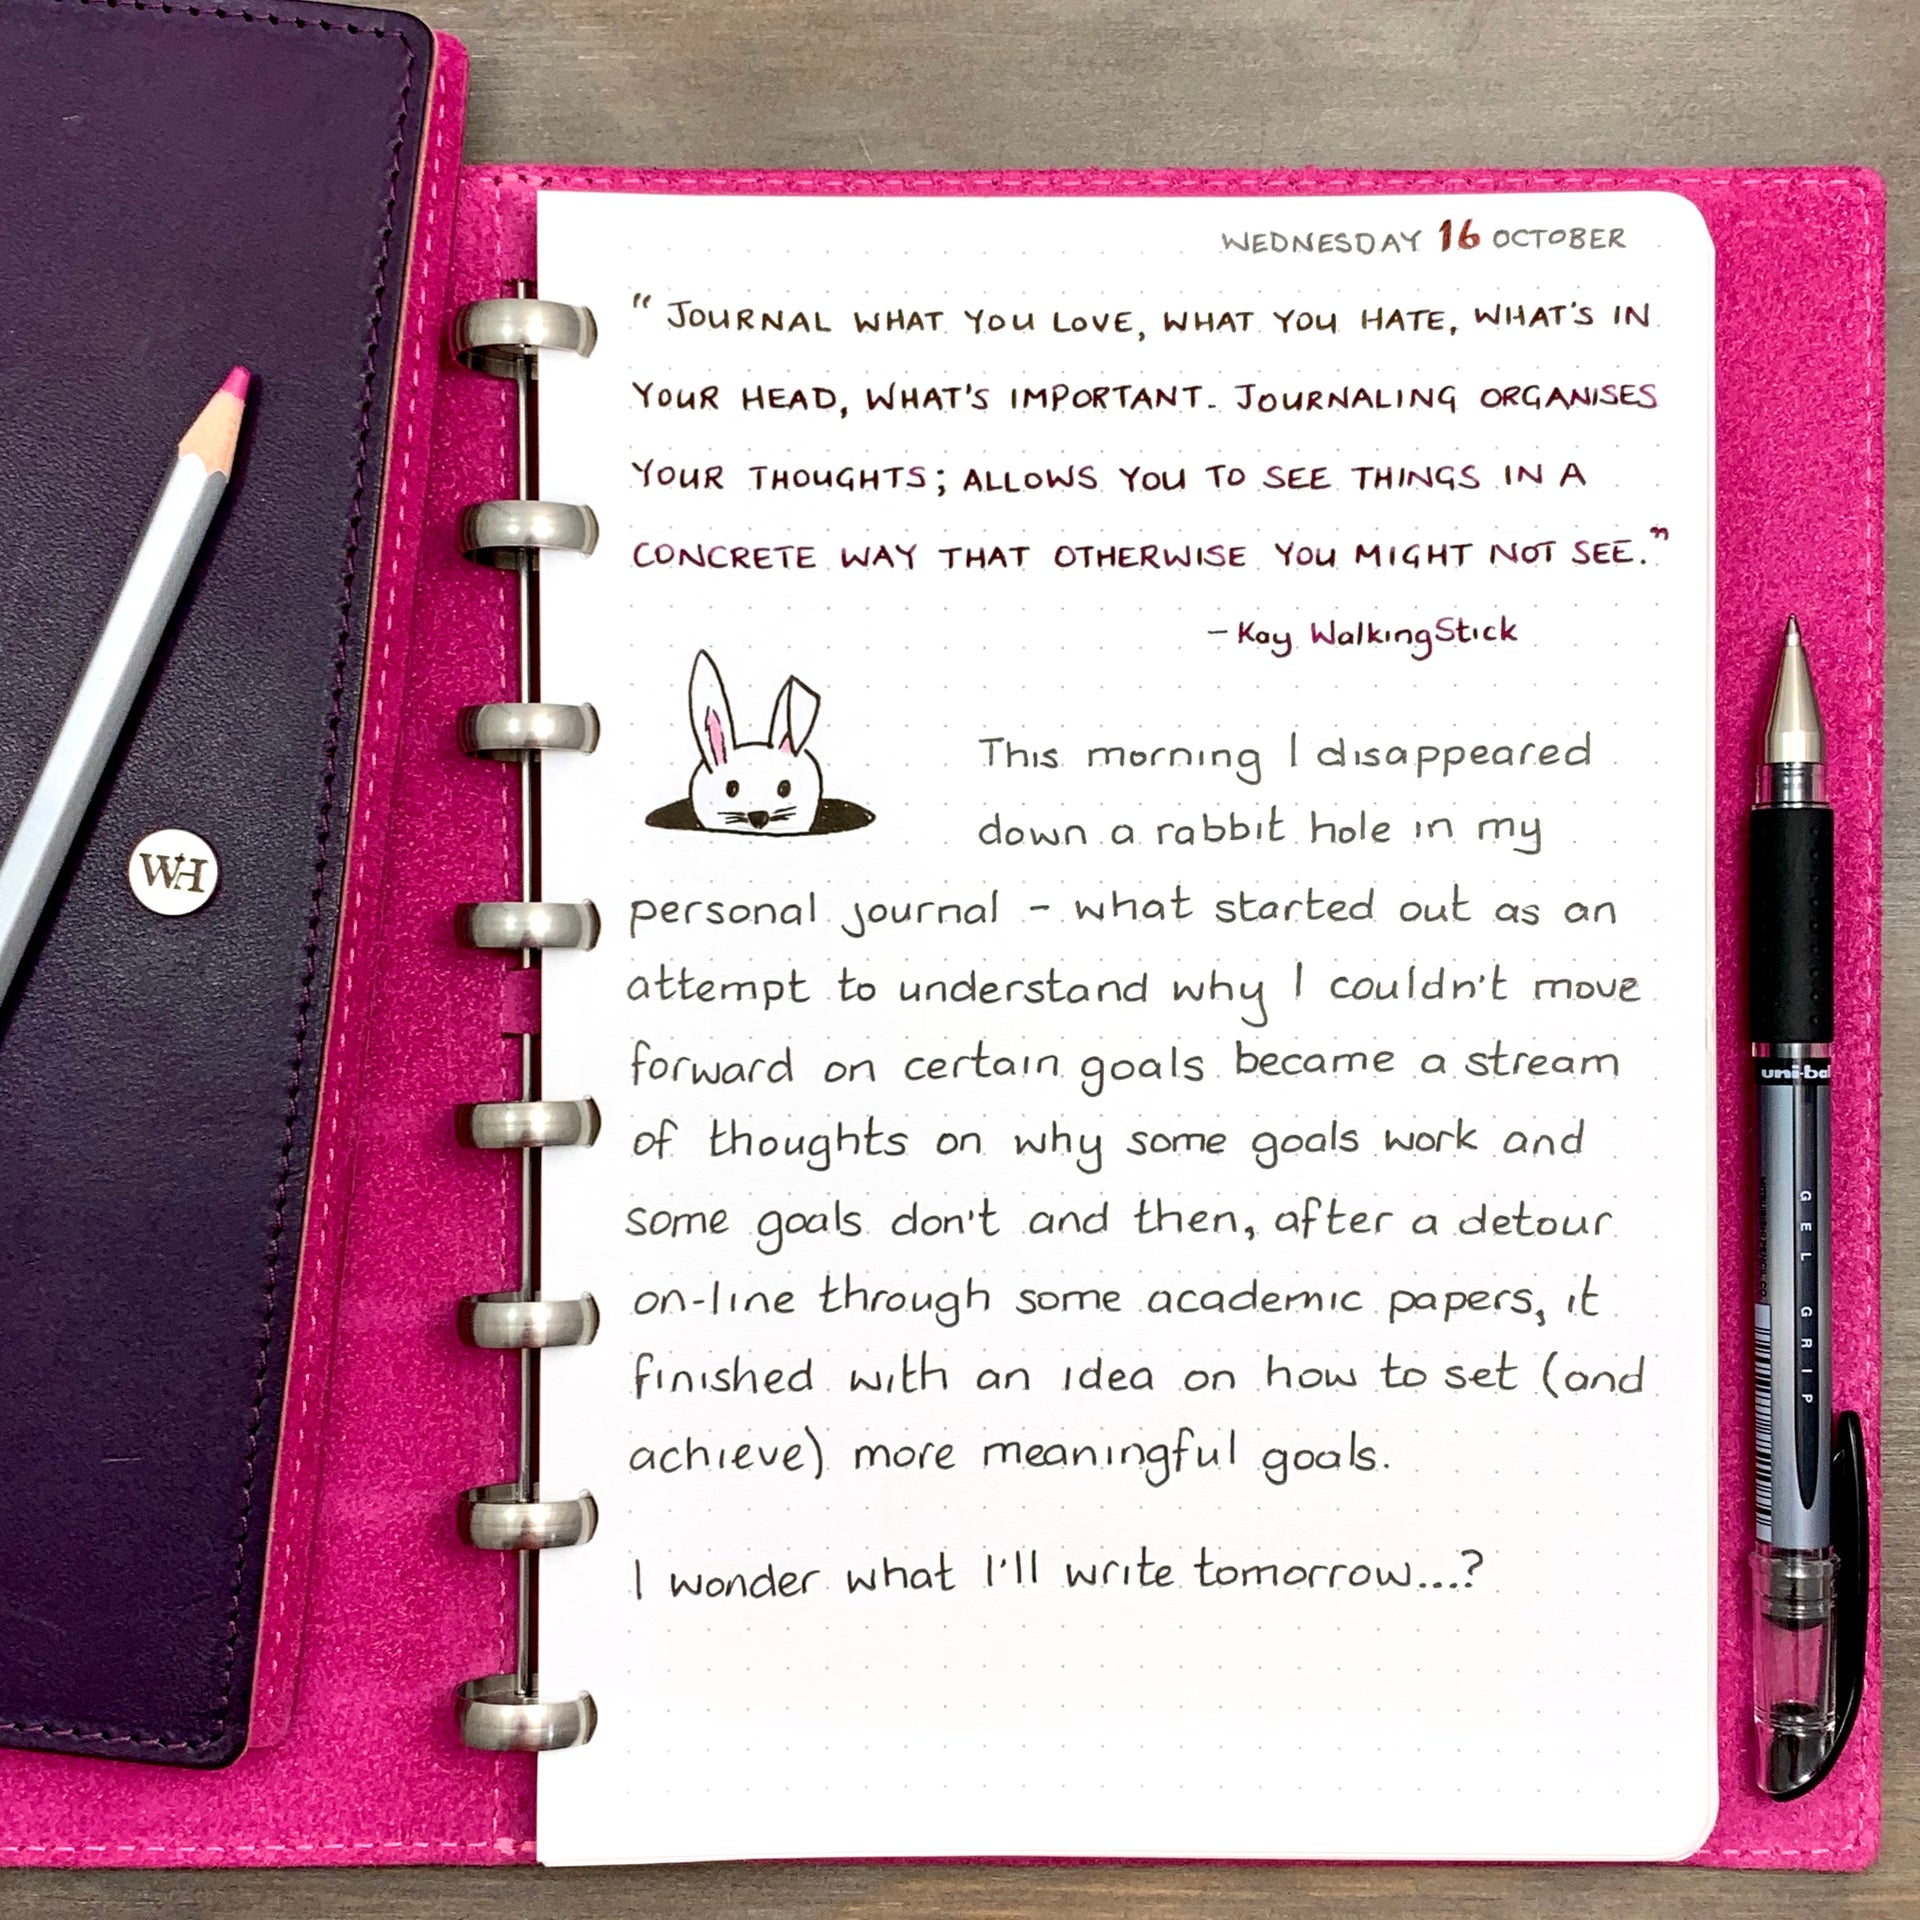 WEDNESDAY 16 OCTOBER
“JOURNAL WHAT YOU LOVE, WHAT YOU HATE, WHAT'S IN
YOUR HEAD, WHAT'S IMPORTANT. JOURNALING ORGANISES
YOUR THOUGHTS; ALLOWS YOU TO SEE THINGS IN A
CONCRETE WAY THAT OTHERWISE YOU MIGHT NOT SEE.”
– Kay WalkingStick
This morning I disappeared
down a rabbit hole in my
personal journal – what started out as an
attempt to understand why I couldn't move
forward on certain goals became a stream
of thoughts on why some goals work and
some goals don't and then, after a detour
on-line through some academic papers, it
finished with an idea on how to set (and
achieve) more meaningful goals.
I wonder what I'll write tomorrow...?
WH
uni-bal
GEL GRIP